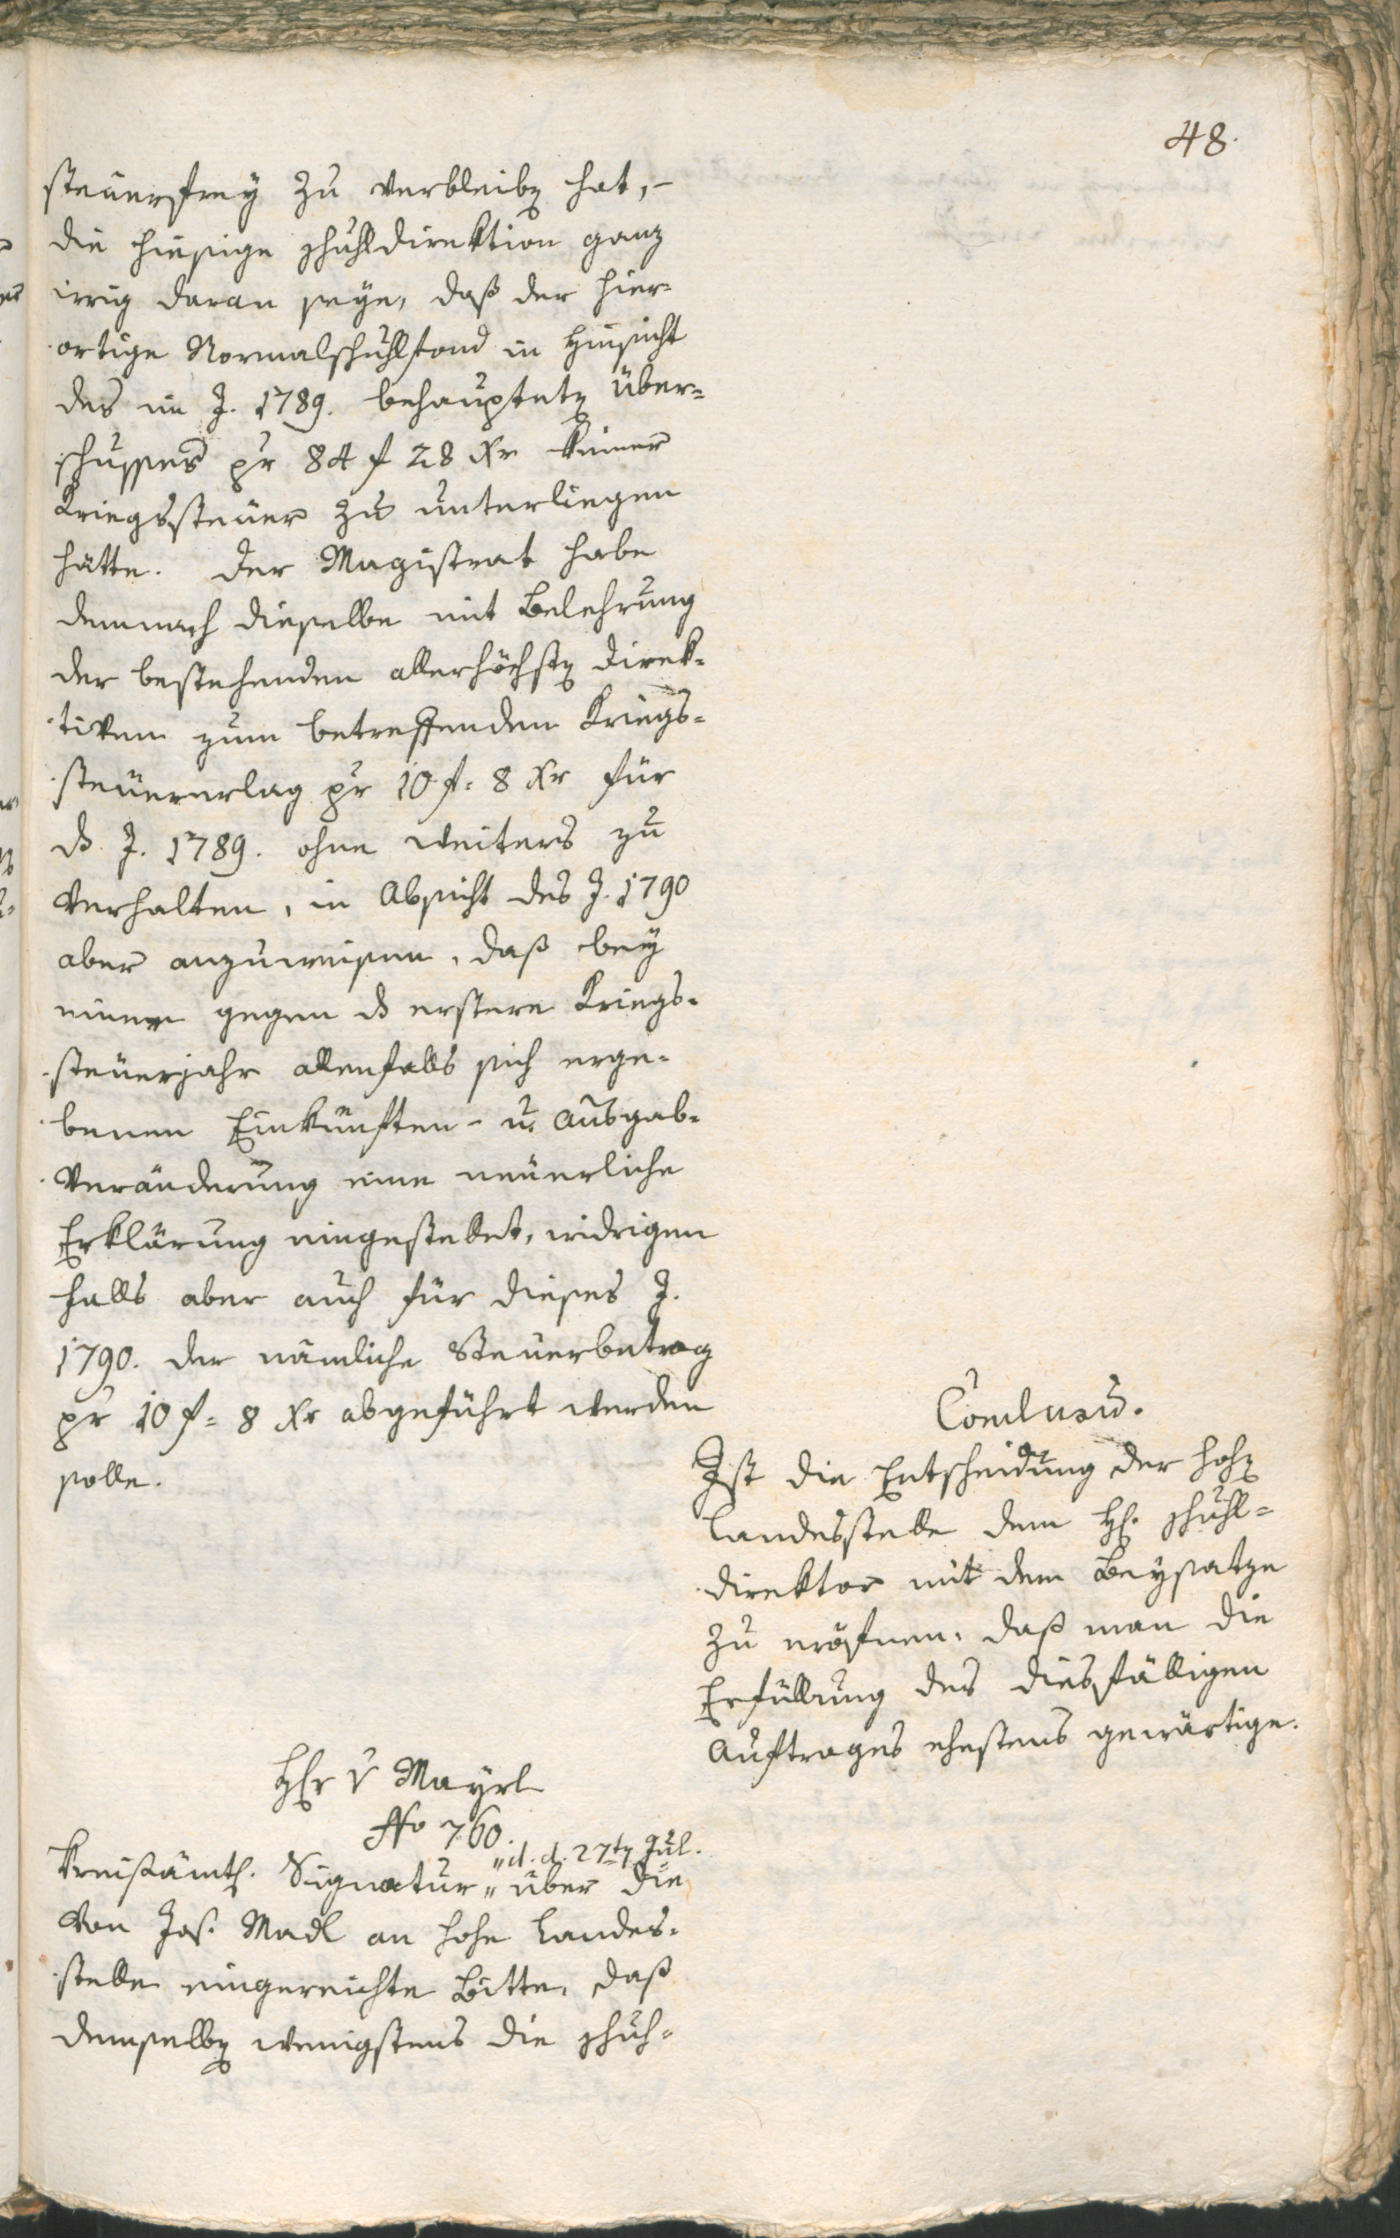 48.
steuerfrey zu verbleiben hat, –
die hiesige Schuhldirektion ganz
irrig daran seye, daß der hier-
ortige Normalschuhlfond in Hinsicht
des im J. 1789. behaupteten Über-
schusses pr 84 f 28 Xr keiner
Kriegssteuer zu unterliegen
hätte. Der Magistrat habe
demnach dieselbe mit Belehrung
der bestehenden allerhöchsten Direk-
tiven zum betreffenden Kriegs-
steuererlag pr 10 f: 8 Xr für
ds J. 1789. ohne weiters zu
verhalten, in Absicht des J. 1790
aber anzuweisen, daß bey
einer gegen ds erstere Kriegs-
steuerjahr allenfalls sich erge-
benen Einkünften- u. Ausgab-
veränderung eine neuerliche
Erklärung eingestellet, widrigen
falls aber auch für dieses J.
1790. der nämliche Steuerbetrag
pr 10 f: 8 Xr abgeführt werden
solle.
Conclusū.
Ist die Entscheidung der hohen
Landesstelle dem H. Schuhl-
direktor mit dem Beysatze
zu eröfnen, daß man die
Erfüllung des diesfälligen
Auftrages ehestens gewärtige.
Hr v Mayrl
No 760.
Kreisämtl. Signatur „d. d. 27ten Jul.„ über die
von Jos. Madl an hohe Landes-
stelle eingereichte Bitte, daß
demselben wenigstens die Schuh-